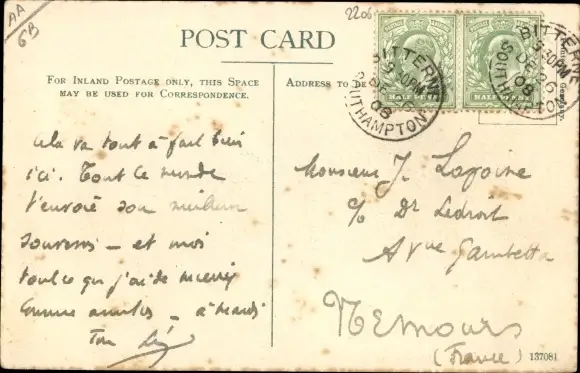 AA
6B
2206
POST CARD
FOR INLAND POSTAGE ONLY, THIS SPACE
MAY BE USED FOR CORRESPONDENCE.
ADDRESS TO BE
HALF PENNY
BITTERNE
3.30PM
DE 6
08
SOUTHAMPTON
BITTERNE
3.30PM
DE 6
08
SOUTHAMPTON
Cela va tout à fait bien
ici. Tout le monde
t'envoie son meilleur
souvenir – et moi
tout ce que j'ai de
comme – à mardi
Ton
Monsieur J. Lapoire
c/o Dr Ledroit
Avue Gambetta
Nemours
(France)
137081